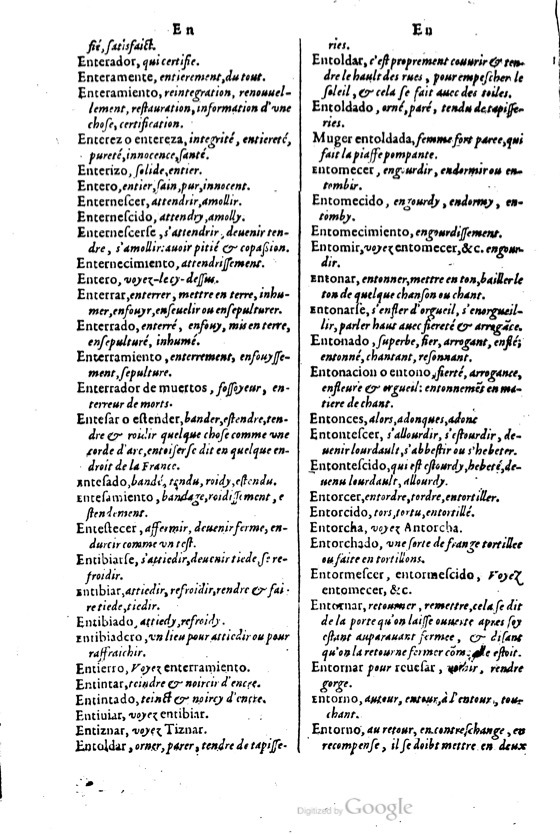 En
fié, satisfaict.
Enterador, qui certifie.
Enteramente, entierement, du tout.
Enteramiento, reintegration, renouuel-
lement, restauration, information d'vne
chose, certification.
Enterez o entereza, integrité, entiereté,
pureté, innocence, santé.
Enterizo, solide, entier.
Entero, entier, sain, pur, innocent.
Enternescer, attendrir, amollir.
Enternescido, attendry, amolly.
Enternescerse, s'attendrir, deuenir ten-
dre, s'amollir: auoir pitié & copassion.
Enternecimiento, attendrissement.
Entero, voyez-le cy-dessus.
Enterrar, enterrer, mettre en terre, inhu-
mer, enfouyr, enseuelir ou ensepulturer.
Enterrado, enterré, enfouy, mis en terre,
ensepulturé, inhumé.
Enterramiento, enterrement, enfouysse-
ment, sepulture.
Enterrador de muertos, fossoyeur, en-
terreur de morts.
Entesar o estender, bander, estendre, ten-
dre & roidir quelque chose comme vne
corde d'arc, entoiser se dit en quelque en-
droit de la France.
Entesado, bandé, tendu, roidy, estendu.
Entesamiento, bandage, roidissement, e
stendement.
Entestecer, affermir, deuenir ferme, en-
durcir comme vn test.
Entibiarse, s'attiedir, deuenir tiede, se re-
froidir.
Entibiar, attiedir, refroidir, rendre & fai-
re tiede, tiedir.
Entibiado, attiedy, refroidy.
Entibiadero, vn lieu pour attiedir ou pour
raffraichir.
Entierro, Voyez enterramiento.
Entintar, teindre & noircir d'encre.
Entintado, teinct & noircy d'encre.
Entiuiar, voyez entibiar.
Entiznar, voyez Tiznar.
Entoldar, orner, parer, tendre de tapisse-
En
ries.
Entoldar, c'est proprement couurir & ten-
dre le hault des rues, pour empescher le
soleil, & cela se fait auec des toiles.
Entoldado, orné, paré, tendu de tapisse-
ries.
Muger entoldada, femme fort paree, qui
fait la piaffe pompante.
Entomecer, engourdir, endormir ou en-
tombir.
Entomecido, engourdy, endormy, en-
tomby.
Entomecimiento, engourdissement.
Entomir, voyez entomecer, &c. engour-
dir.
Entonar, entonner, mettre en ton, bailler le
ton de quelque chanson ou chant.
Entonarse, s'enfler d'orgueil, s'enorgueil-
lir, parler haut auec fiereté & arrogāce.
Entonado, superbe, fier, arrogant, enflé;
entonné, chantant, resonnant.
Entonacion o entono, fierté, arrogance,
enfleure & orgueil: entonnemēs en ma-
tiere de chant.
Entonces, alors, adonques, adonc
Entontescer, s'allourdir, s'estourdir, de-
uenir lourdault, s'abbestir ou s'hebeter.
Entontescido, qui est estourdy, hebeté, de-
uenu lourdault, allourdy.
Entorcer, entordre, tordre, entortiller.
Entorcido, tors, tortu, entortillé.
Entorcha, voyez Antorcha.
Entorchado, vne sorte de frange tortillee
ou faite en tortillons.
Entormescer, entormescido, Voyez
entomecer, &c.
Entornar, retourner, remettre, cela se dit
de la porte qu'on laisse ouuerte apres soy
estant auparauant fermee, & disant
qu'on la retourne fermer cōm; elle estoit.
Entornar pour reuesar, vomir, rendre
gorge.
Entorno, autour, entour, à l'entour, tou-
chant.
Entorno, au retour, en contreschange, en
recompense, il se doibt mettre en deux
Digitized by Google